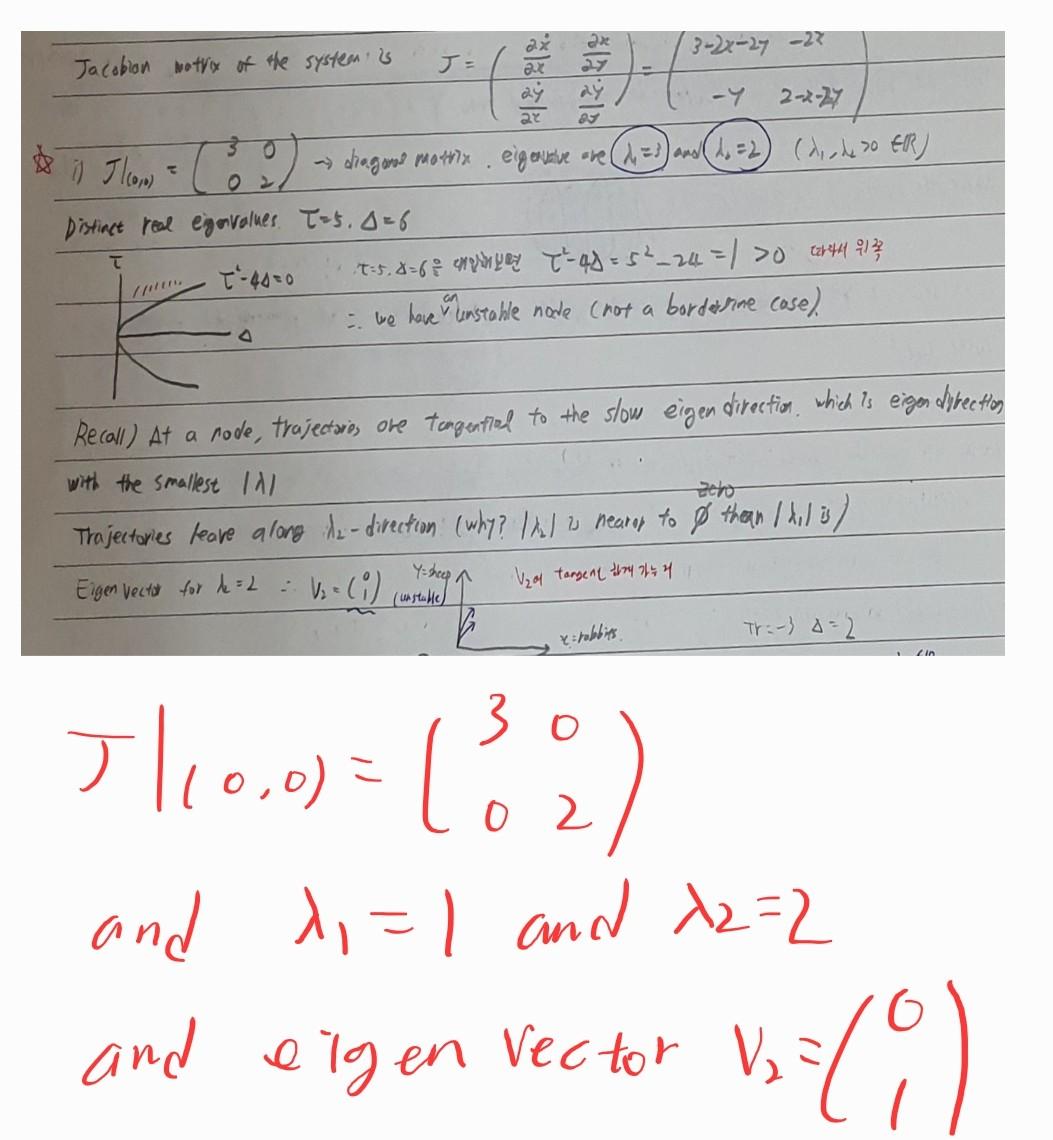 Jacobian matrix of the system is J = ( ∂ẋ/∂x ∂ẋ/∂y ; ∂ẏ/∂x ∂ẏ/∂y ) = ( 3-2x-2y -2x ; -y 2-x-2y )
☆ i) J|(0,0) = ( 3 0 ; 0 2 ) → diagonal matrix. eigenvalue are λ₁=3 and λ₂=2 (λ₁, λ₂ >0 ∈ℝ)
Distinct real eigenvalues. τ=5. Δ=6
τ
τ²-4Δ=0 τ=5, Δ=6을 대입해보면 τ²-4Δ=5²-24=1>0 따라서 위쪽
Δ
∴ we have an unstable node (not a borderline case).
Recall) At a node, trajectories are tangential to the slow eigen direction. which is eigen direction
with the smallest |λ|
Trajectories leave along λ₂-direction (why? |λ₂| is nearer to zero than |λ₁| is)
Eigen vector for λ=2 ∴ V₂ = ( 0 ; 1 ) (unstable)
y=sheep
V₂에 tangent 하게
x=rabbits.
Tr=-3 Δ=2
J|(0,0) = ( 3 0 ; 0 2 )
and λ1 = 1 and λ2=2
and eigen vector V₂ = ( 0 ; 1 )